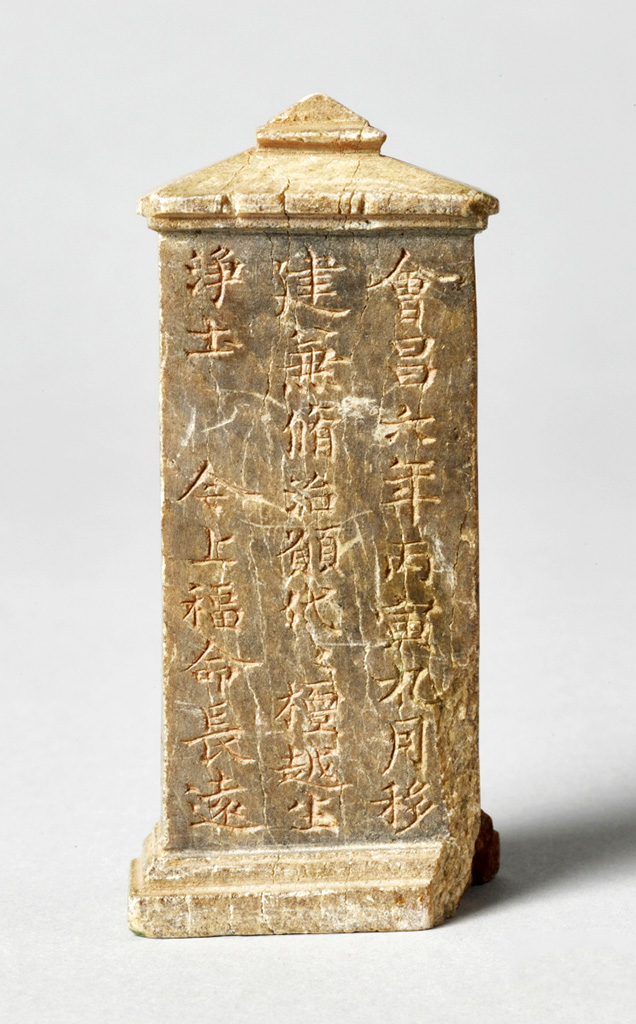 會昌六年丙寅九月移
建無脩治願代〻檀越生
淨土　令上福命長遠